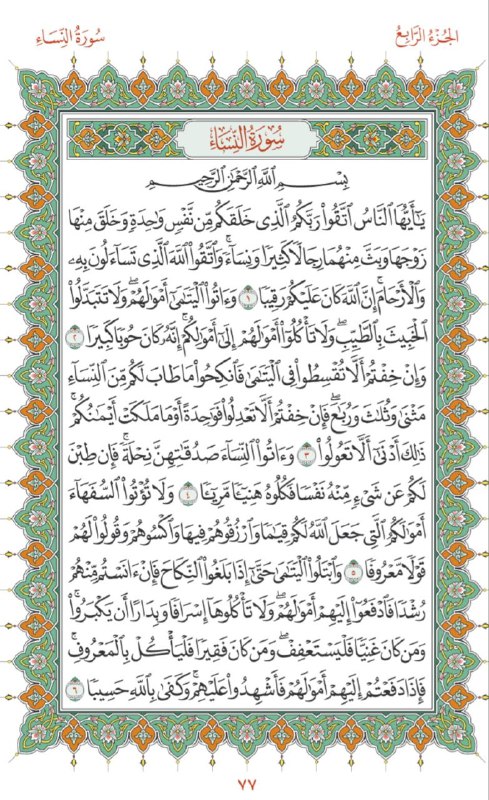 الجُزْءُ الرَّابِعُ
سُورَةُ النِّسَاءِ
سُورَةُ النِّسَاءِ
بِسْمِ ٱللَّهِ ٱلرَّحْمَٰنِ ٱلرَّحِيمِ
يَٰٓأَيُّهَا ٱلنَّاسُ ٱتَّقُوا۟ رَبَّكُمُ ٱلَّذِى خَلَقَكُم مِّن نَّفْسٍ وَٰحِدَةٍ وَخَلَقَ مِنْهَا
زَوْجَهَا وَبَثَّ مِنْهُمَا رِجَالًا كَثِيرًا وَنِسَآءً ۚ وَٱتَّقُوا۟ ٱللَّهَ ٱلَّذِى تَسَآءَلُونَ بِهِۦ
وَٱلْأَرْحَامَ ۚ إِنَّ ٱللَّهَ كَانَ عَلَيْكُمْ رَقِيبًا ١ وَءَاتُوا۟ ٱلْيَتَٰمَىٰٓ أَمْوَٰلَهُمْ ۖ وَلَا تَتَبَدَّلُوا۟
ٱلْخَبِيثَ بِٱلطَّيِّبِ ۖ وَلَا تَأْكُلُوٓا۟ أَمْوَٰلَهُمْ إِلَىٰٓ أَمْوَٰلِكُمْ ۚ إِنَّهُۥ كَانَ حُوبًا كَبِيرًا ٢
وَإِنْ خِفْتُمْ أَلَّا تُقْسِطُوا۟ فِى ٱلْيَتَٰمَىٰ فَٱنكِحُوا۟ مَا طَابَ لَكُم مِّنَ ٱلنِّسَآءِ
مَثْنَىٰ وَثُلَٰثَ وَرُبَٰعَ ۖ فَإِنْ خِفْتُمْ أَلَّا تَعْدِلُوا۟ فَوَٰحِدَةً أَوْ مَا مَلَكَتْ أَيْمَٰنُكُمْ ۚ
ذَٰلِكَ أَدْنَىٰٓ أَلَّا تَعُولُوا۟ ٣ وَءَاتُوا۟ ٱلنِّسَآءَ صَدُقَٰتِهِنَّ نِحْلَةً ۚ فَإِن طِبْنَ
لَكُمْ عَن شَىْءٍ مِّنْهُ نَفْسًا فَكُلُوهُ هَنِيٓـًٔا مَّرِيٓـًٔا ٤ وَلَا تُؤْتُوا۟ ٱلسُّفَهَآءَ
أَمْوَٰلَكُمُ ٱلَّتِى جَعَلَ ٱللَّهُ لَكُمْ قِيَٰمًا وَٱرْزُقُوهُمْ فِيهَا وَٱكْسُوهُمْ وَقُولُوا۟ لَهُمْ
قَوْلًا مَّعْرُوفًا ٥ وَٱبْتَلُوا۟ ٱلْيَتَٰمَىٰ حَتَّىٰٓ إِذَا بَلَغُوا۟ ٱلنِّكَاحَ فَإِنْ ءَانَسْتُم مِّنْهُمْ
رُشْدًا فَٱدْفَعُوٓا۟ إِلَيْهِمْ أَمْوَٰلَهُمْ ۖ وَلَا تَأْكُلُوهَآ إِسْرَافًا وَبِدَارًا أَن يَكْبَرُوا۟ ۚ
وَمَن كَانَ غَنِيًّا فَلْيَسْتَعْفِفْ ۖ وَمَن كَانَ فَقِيرًا فَلْيَأْكُلْ بِٱلْمَعْرُوفِ ۚ
فَإِذَا دَفَعْتُمْ إِلَيْهِمْ أَمْوَٰلَهُمْ فَأَشْهِدُوا۟ عَلَيْهِمْ ۚ وَكَفَىٰ بِٱللَّهِ حَسِيبًا ٦
٧٧